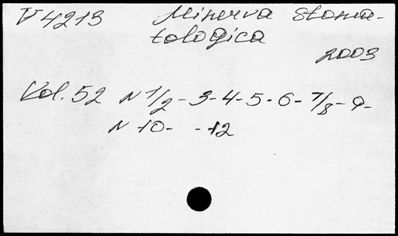 V4213 Minerva stoma-
tologica
2003
Vol. 52 N 1/2-3-4-5-6-7/8-9-
N 10- -12